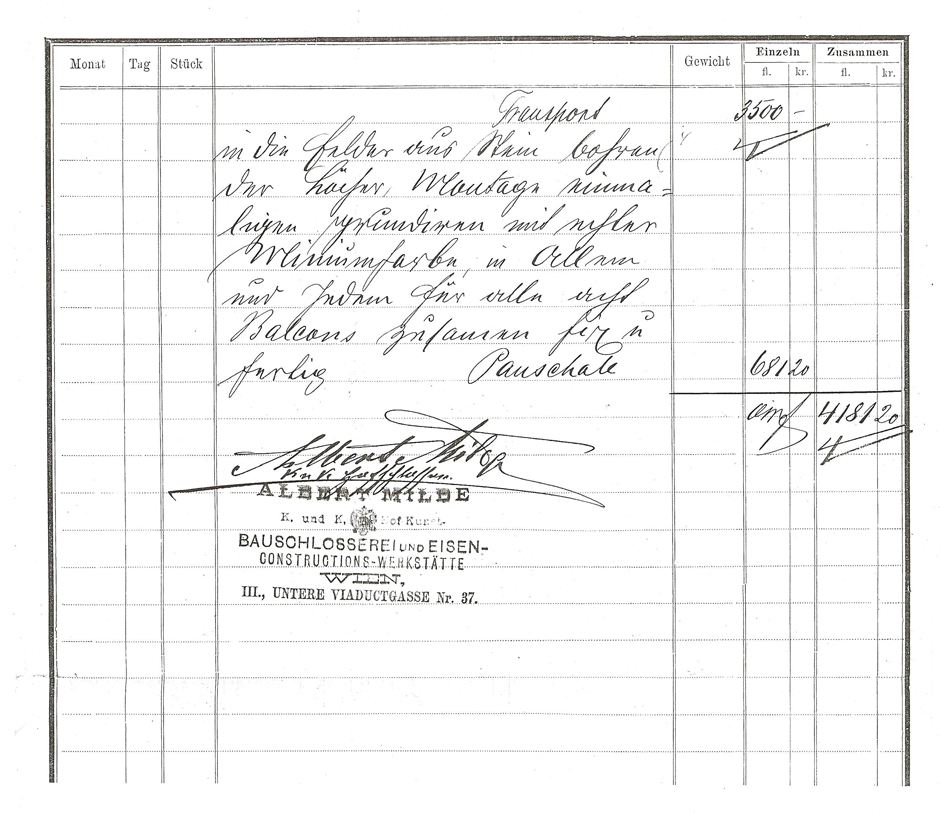 Monat Tag Stück Gewicht Einzeln Zusammen
fl. kr. fl. kr.
Transport 3500 -
in die Felder aus Stein bohren
der Löcher, Montage einma=
ligen grundiren mit echter
Miniumfarbe, in Allem
und Jedem für alle acht
Balcons zusamen fix u
fertig Pauschale 681 20
4181 20
Albert Milde
k u k Hofschlosser
ALBERT MILDE
K. und K. Hof Kunst-
BAUSCHLOSSEREI UND EISEN-
CONSTRUCTIONS-WERKSTÄTTE
WIEN,
III., UNTERE VIADUCTGASSE Nr. 37.